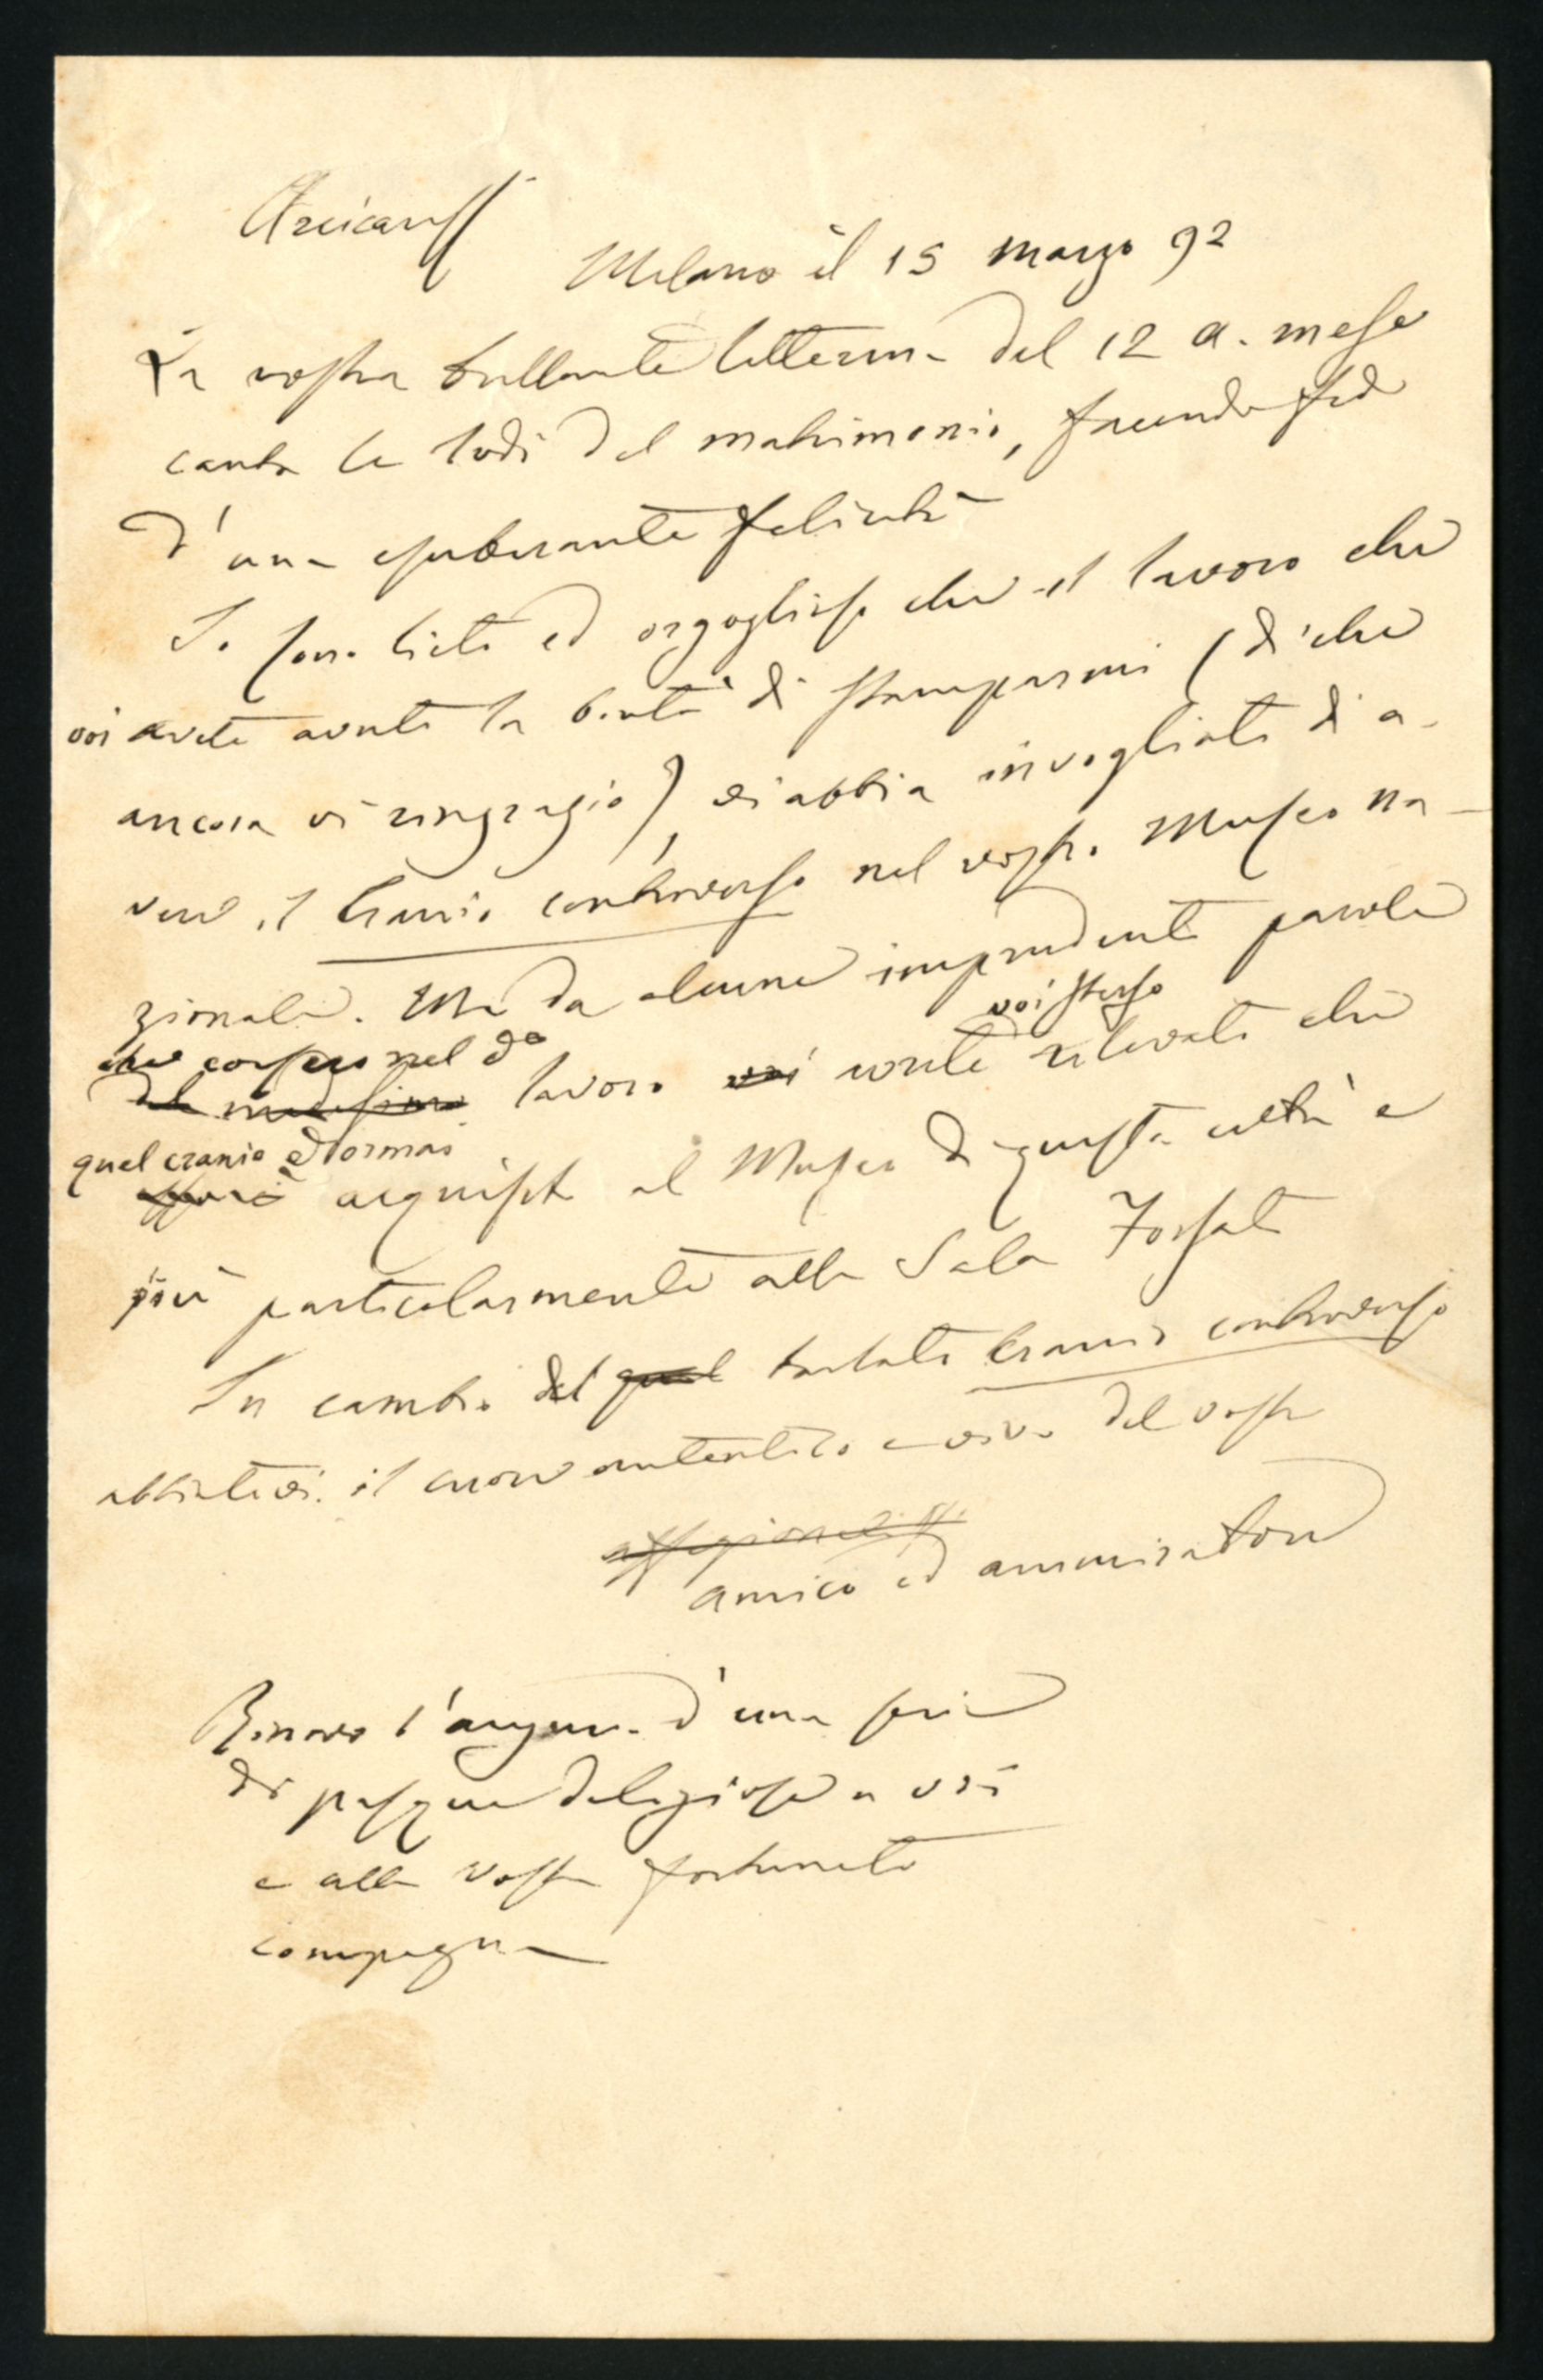 Arcicariss
Milano il 15 marzo 92
La vostra brillante letterina del 12 a. mese
canta le lodi del matrimonio, facendo fede
d'una esuberante felicità
Io sono lieto ed orgoglioso che il lavoro che
voi avete avuto la bontà di stamparmi (di che
ancora vi ringrazio), vi abbia invogliato di a-
vere il Cranio controverso nel vostro Museo Na-
zionale. Ma da alcune imprudenti parole
voi stesso
che corsero nel do
del medesimo lavoro voi avrete rilevato che
quel cranio è ormai
acquisito al Museo di questa città e
più particolarmente alla Sala Fossati
In cambio del quel trattato Cranio controverso
abbiatevi il cuore autentico e vivo del vostro
affezionatiss.
amico ed ammiratore
Rinnovo l'augurio d'una serie
di pasque deliziose a voi
e alla vostra fortunata
compagna